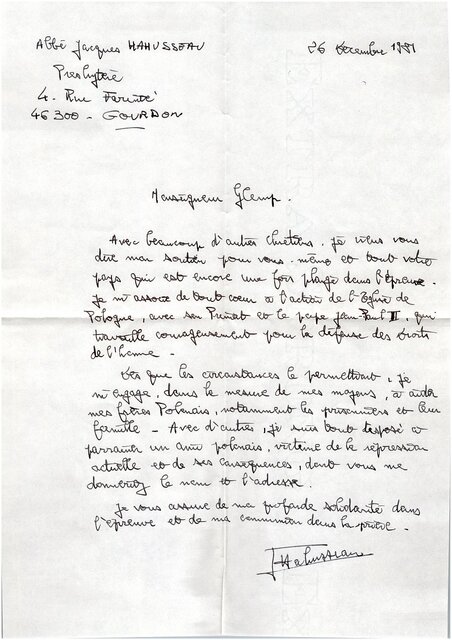 Abbé Jacques HAHUSSEAU
26 décembre 1981
Presbytère
4. Rue
46300 - GOURDON
Monseigneur Glemp.
Avec beaucoup d'autres chrétiens, je viens vous
dire mon soutien pour vous-même et tout votre
pays qui est encore une fois plongé dans l'épreuve.
Je m'associe de tout coeur à l'action de l'Eglise de
Pologne, avec son Primat et le pape Jean Paul II, qui
travaille courageusement pour la défense des droits
de l'homme.
Dès que les circonstances le permettront, je
m'engage, dans la mesure de mes moyens, à aider
mes frères Polonais, notamment les prisonniers et leur
famille - Avec d'autres, je suis tout disposé à
parrainer un ami polonais, victime de la répression
actuelle et de ses conséquences, dont vous me
donnerez le nom et l'adresse.
Je vous assure de ma profonde solidarité dans
l'épreuve et de ma communion dans la prière.
JHahusseau